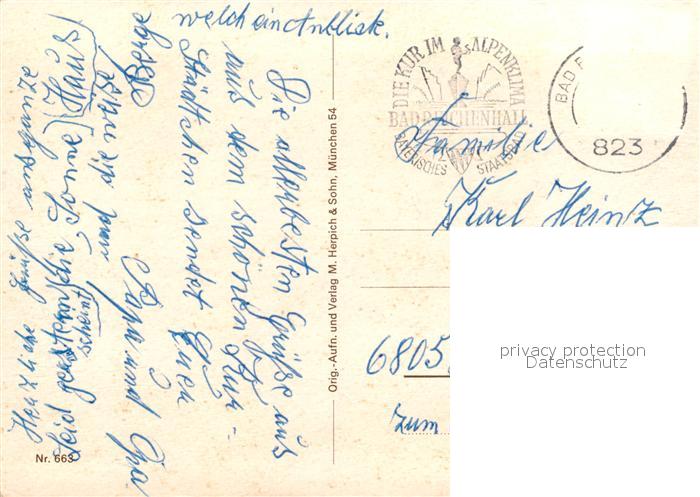 Die allerbesten Grüße aus
aus dem schönen Kur-
städtchen sendet Euch
Papa und Opa
Herzliche Grüße ans ganze Haus
Seid gestern die Sonne
scheint und die weiße Berge
welch ein Anblick.
Orig.-Aufn. und Verlag M. Herpich & Sohn, München 54
Nr. 663
DIE KUR IM ALPENKLIMA
BAD REICHENHALL
BAYERISCHES STAATSBAD
BAD
823
Familie
Karl Heinz
6805
zum
privacy protection
Datenschutz